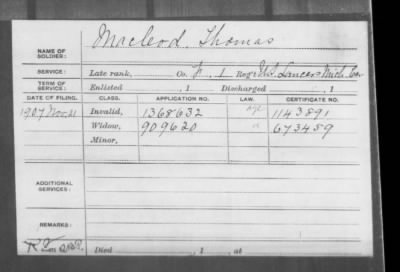 NAME OF SOLDIER: Macleod, Thomas
SERVICE: Late rank, Co. F, 1 Reg't U.S. Lancers Mich. Cav
TERM OF SERVICE: Enlisted , 1 Discharged , 1
DATE OF FILING. CLASS. APPLICATION NO. LAW. CERTIFICATE NO.
1907 Nov. 21 Invalid, 1368632 1143891
Widow, 909620 " 673489
Minor,
ADDITIONAL SERVICES:
REMARKS:
Died , 1 , at